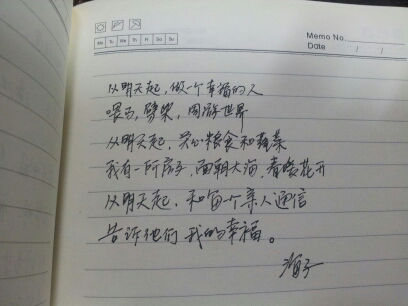 Memo No.
Mo Tu We Th Fr Sa Su
Date / /
从明天起，做一个幸福的人
喂马，劈柴，周游世界
从明天起，关心粮食和蔬菜
我有一所房子，面朝大海，春暖花开
从明天起，和每个亲人通信
告诉他们我的幸福。
海子